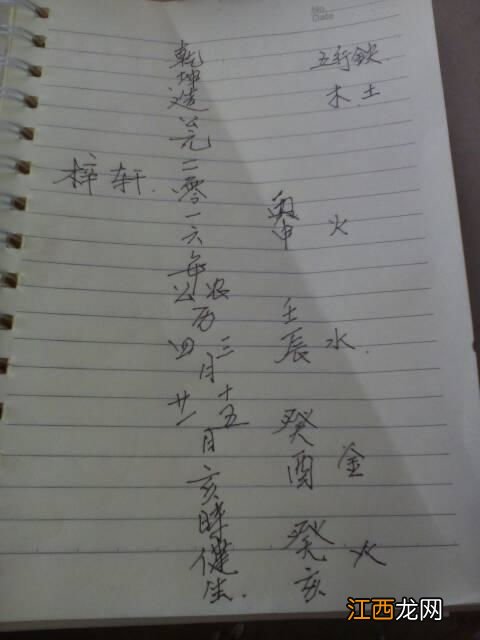 No.
Date
五行缺
木土
丙申 火
壬辰 水
癸酉 金
癸亥 火
乾坤造公元二零一六年
公 农
历
四 三
月
廿一 十五
日亥時健生.
梓轩.
江西龙网